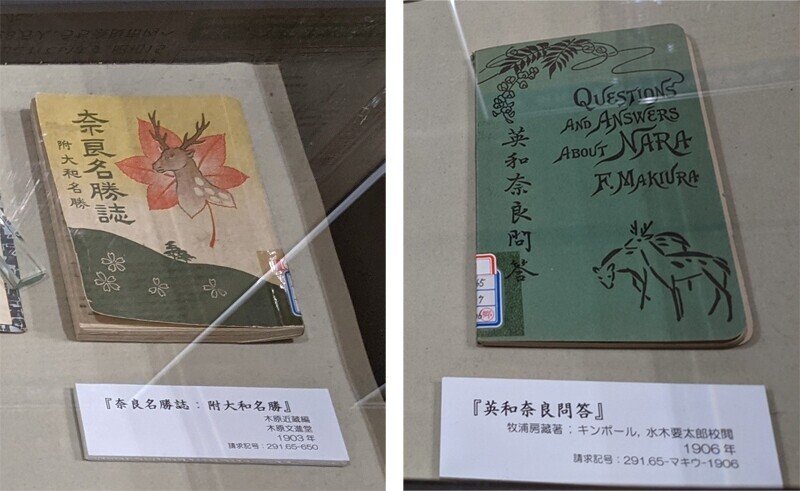 奈良名勝誌
附大和名勝
『奈良名勝誌：附大和名勝』
木原近蔵編
木原文進堂
1903年
請求記号：291.65-650
QUESTIONS
AND ANSWERS
ABOUT NARA
F. MAKIURA
英和奈良問答
『英和奈良問答』
牧浦房藏著：キンボール, 水木要太郎校閲
1906年
請求記号：291.65-マキウ-1906